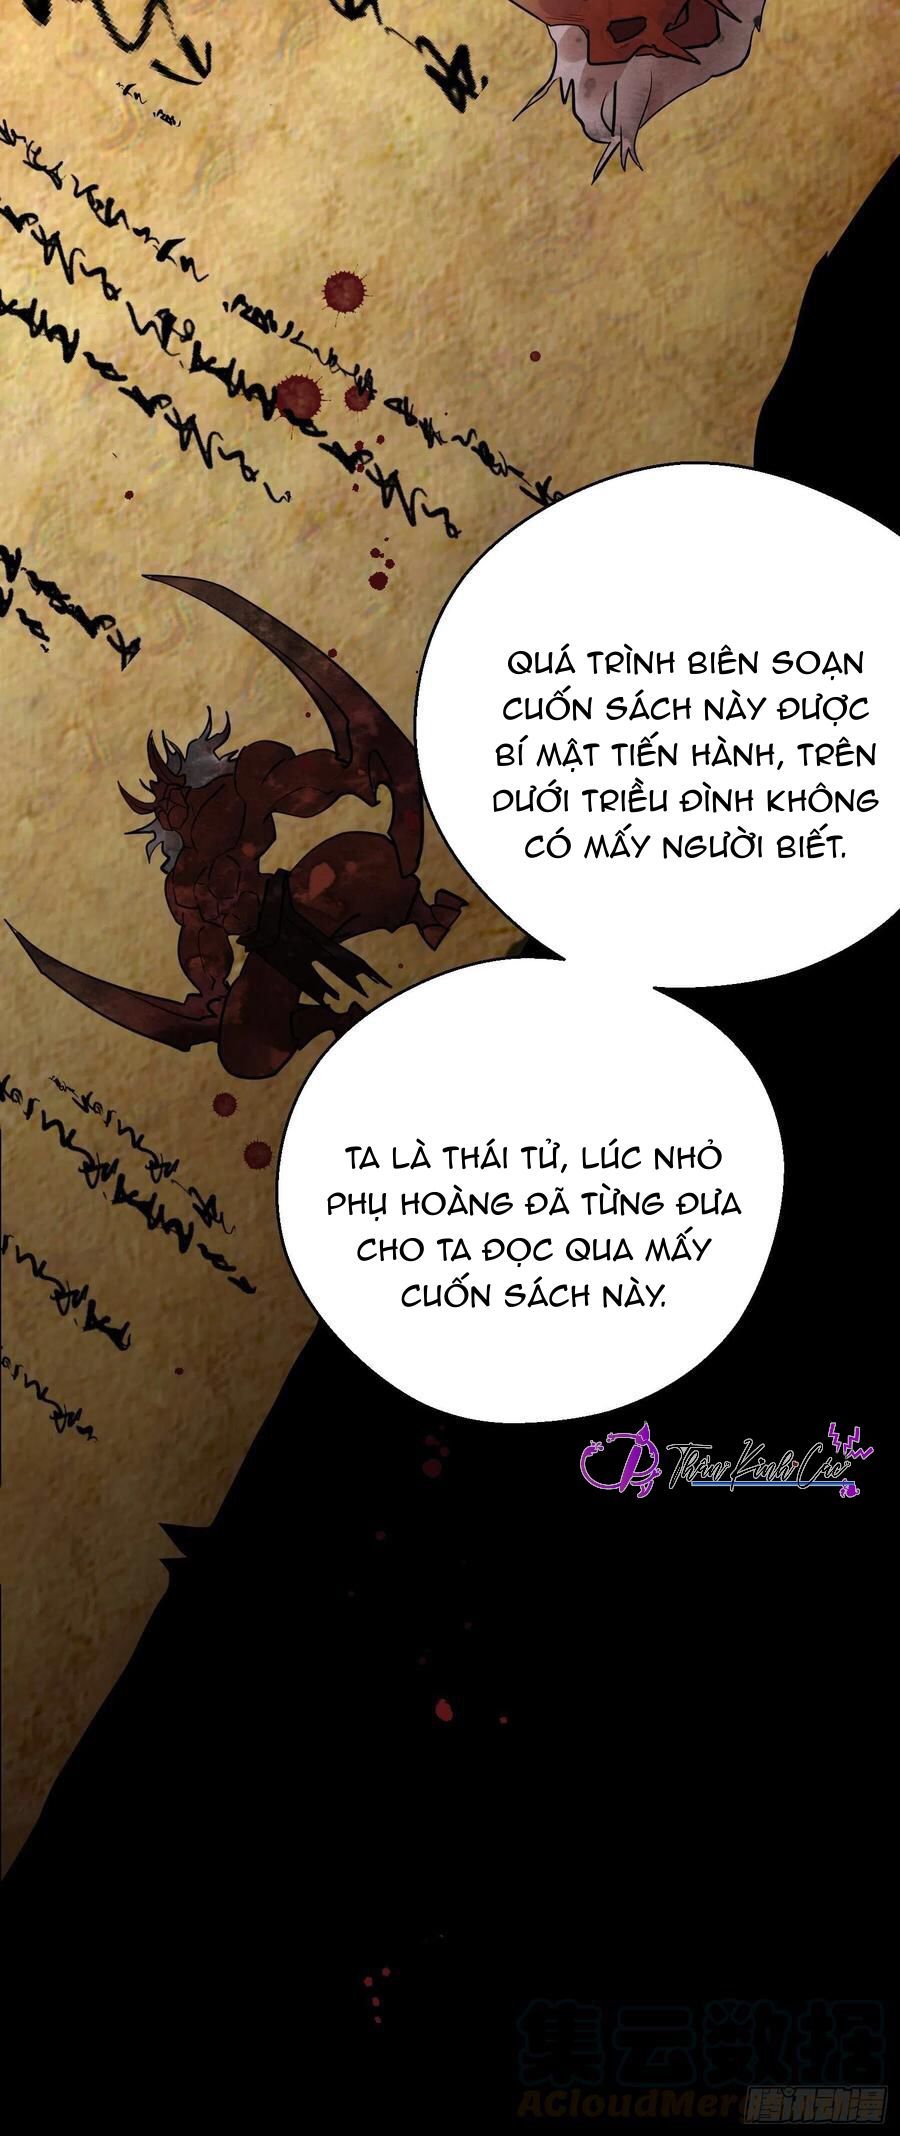 QUÁ TRÌNH BIÊN SOẠN
CUỐN SÁCH NÀY ĐƯỢC
BÍ MẬT TIẾN HÀNH, TRÊN
DƯỚI TRIỀU ĐÌNH KHÔNG
CÓ MẤY NGƯỜI BIẾT.
TA LÀ THÁI TỬ, LÚC NHỎ
PHỤ HOÀNG ĐÃ TỪNG ĐƯA
CHO TA ĐỌC QUA MẤY
CUỐN SÁCH NÀY.
Thần Kinh Các
集云数据
ACloudMerge
腾讯动漫